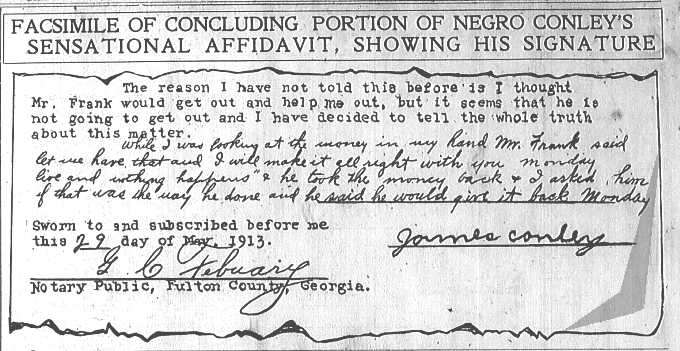 FACSIMILE OF CONCLUDING PORTION OF NEGRO CONLEY'S
SENSATIONAL AFFIDAVIT, SHOWING HIS SIGNATURE
The reason I have not told this before is I thought
Mr. Frank would get out and help me out, but it seems that he is
not going to get out and I have decided to tell the whole truth
about this matter.
While I was looking at the money in my hand Mr. Frank said
let me have that and I will make it all right with you Monday
live and nothing happens" & he took the money back & I asked him
if that was the way he done and he said he would give it back Monday
Sworn to and subscribed before me
this 29 day of May, 1913.
James Conley
G C Febuary
Notary Public, Fulton County, Georgia.